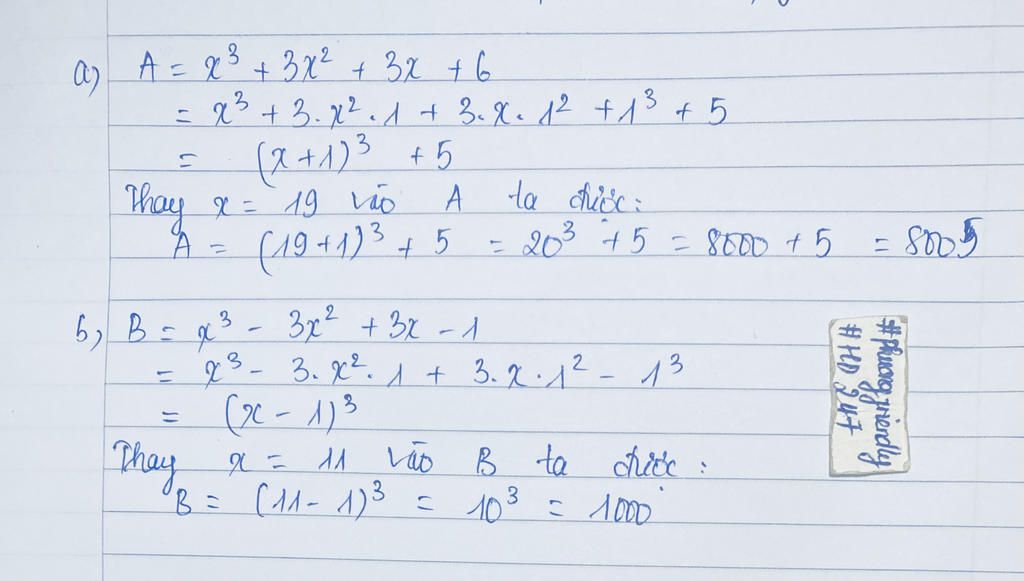 a) A = x³ + 3x² + 3x + 6
= x³ + 3.x².1 + 3.x.1² + 1³ + 5
= (x+1)³ + 5
Thay x = 19 vào A ta được:
A = (19+1)³ + 5 = 20³ + 5 = 8000 + 5 = 8005
b) B = x³ - 3x² + 3x - 1
= x³ - 3.x².1 + 3.x.1² - 1³
= (x - 1)³
Thay x = 11 vào B ta được:
B = (11 - 1)³ = 10³ = 1000
#HD 247